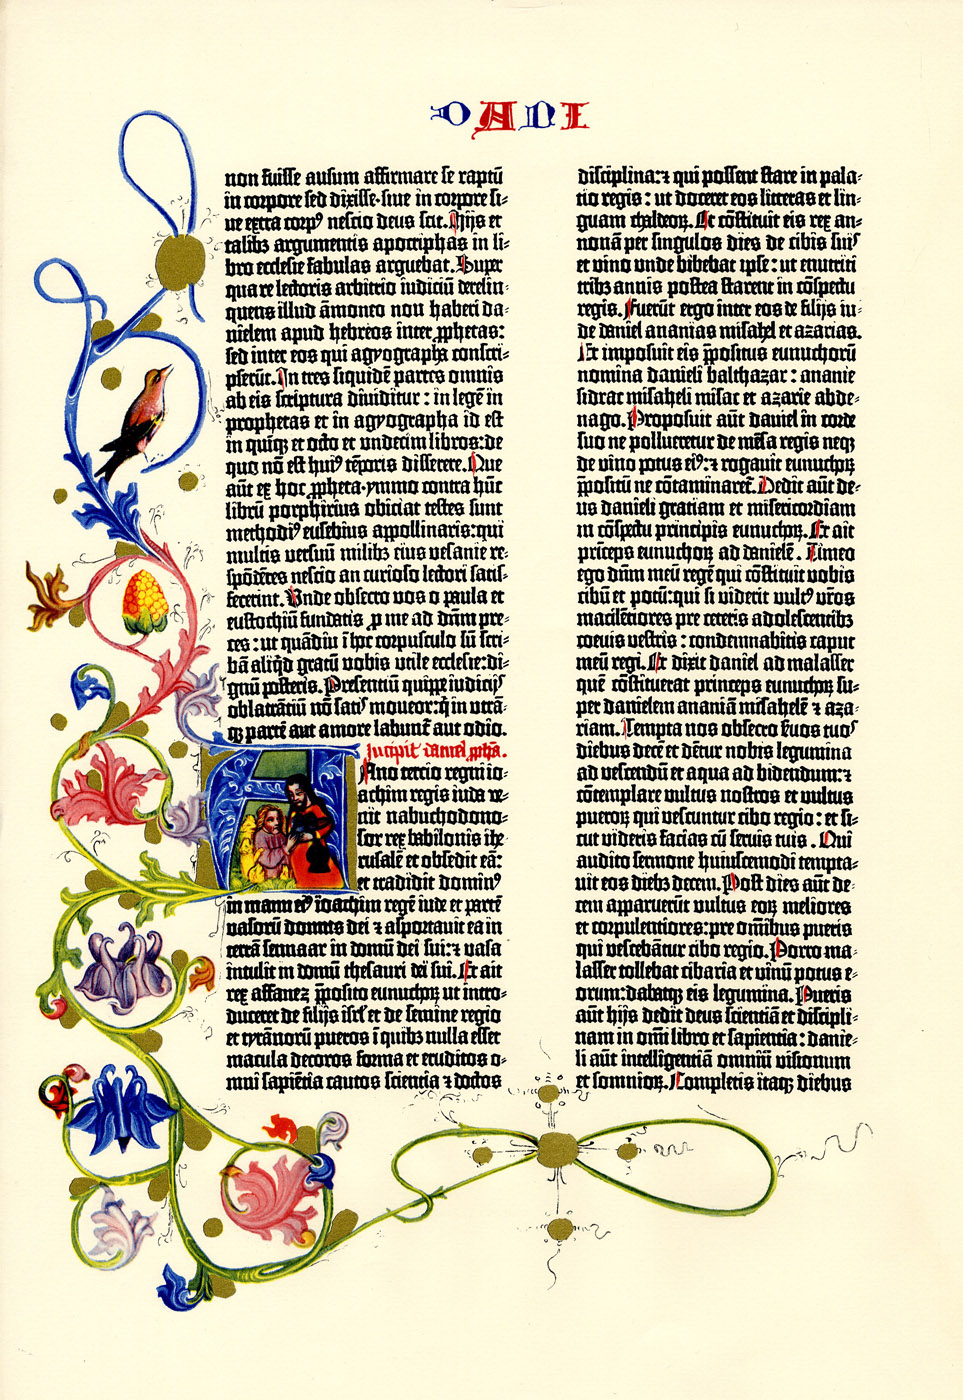 DANI
non fuisse ausum affirmare se raptū
in corpore sed dixisse·siue in corpore si-
ue extra corpꝰ nescio deus scit. Hijs et
talibꝫ argumentis apocriphas in li-
bro ecclesie fabulas arguebat. Super
qua re lectoris arbitrio iudiciū derelin-
quens illud āmoneo non haberi da-
nielem apud hebreos inter ꝓphetas:
sed inter eos qui agyographa conscri-
pserūt. In tres siquidē partes omnis
ab eis scriptura diuiditur: in legē in
prophetas et in agyographa id est
in quīqꝫ et octo et undecim libros: de
quo nō est huiꝰ tēporis disserere. Que
aūt ex hoc ꝓpheta·ymmo contra hūc
librū porphirius obiciat testes sunt
methodiꝰ eusebius appollinaris: qui
multis versuū milibꝫ eius vesanie re-
spōdētes nescio an curioso lectori satis-
fecerint. Unde obsecro vos o paula et
eustochiū fundatis ꝓ me ad dn̄m pre-
ces: ut quādiu ī hoc corpusculo sū scri-
bā aliqd gratū vobis utile ecclesie: di-
gnū posteris. Presentiū quippe iudicijs
oblatrātiū nō satis moueor: qͥ in utrā-
qꝫ partē aut amore labunt᷑ aut odio.
Incipit daniel ꝓpha.
Anno tercio regni io-
achim regis iuda ve-
nit nabuchodono-
sor rex babilonis ihe-
rusalē et obsedit eā:
et tradidit dominꝰ
in manu eiꝰ ioachim regē iude et partē
vasorū domus dei ⁊ asportauit ea in
terrā sennaar in domū dei sui: ⁊ vasa
intulit in domū thesauri dei sui. Et ait
rex affanez p̄posito eunuchoꝝ ut intro-
duceret de filijs isrl̄ et de semine regio
et tyrānorū pueros ī quibꝫ nulla esset
macula decoros forma et eruditos o-
mni sapiētia cautos scientia ⁊ doctos
disciplina: ⁊ qui possent stare in pala-
tio regis: ut doceret eos litteras et lin-
guam chaldeoꝝ. Et cōstituit eis rex an-
nonā per singulos dies de cibis suis
et vino unde bibebat ipse: ut enutriti
tribꝫ annis postea starent in cōspectu
regis. Fuerūt ergo inter eos de filijs iu-
de daniel ananias misahel et azarias.
Et imposuit eis p̄positus eunuchorū
nomina danieli balthazar: ananie
sidrac misaheli misac et azarie abde-
nago. Proposuit aūt daniel in corde
suo ne pollueretur de mēsa regis neqꝫ
de vino potus eiꝰ: ⁊ rogauit eunuchoꝝ
p̄positū ne cōtaminaret᷑. Dedit aūt de-
us danieli gratiam et misericordiam
in cōspectu principis eunuchoꝝ. Et ait
prīceps eunuchoꝝ ad danielē. Timeo
ego dn̄m meū regē qui cōstituit vobis
cibū et potū: qui si viderit vultꝰ vr̄os
macilētiores pre ceteris adolescentibꝫ
coeuis vestris: condemnabitis caput
meū regi. Et dixit daniel ad malasser
quē cōstituerat princeps eunuchoꝝ su-
per danielem ananiā misahelē ⁊ aza-
riam. Tempta nos obsecro ẜuos tuos
diebus decē et dētur nobis legumina
ad vescendū et aqua ad bibendum: ⁊
cōtemplare vultus nostros et vultus
pueroꝝ qui vescuntur cibo regio: et si-
cut videris facias cū seruis tuis. Qui
audito sermone huiuscemodi tempta-
uit eos diebꝫ decem. Post dies aūt de-
cem apparuerūt vultus eoꝝ meliores
et corpulentiores: pre omībus pueris
qui vescebātur cibo regio. Porro ma-
lasser tollebat cibaria et vinū potus e-
orum: dabatqꝫ eis legumina. Pueris
aūt hijs dedit deus scientiā et discipli-
nam in omī libro et sapientia: danie-
li aūt intelligentiā omniū visionum
et somnioꝝ. Completis itaqꝫ diebus